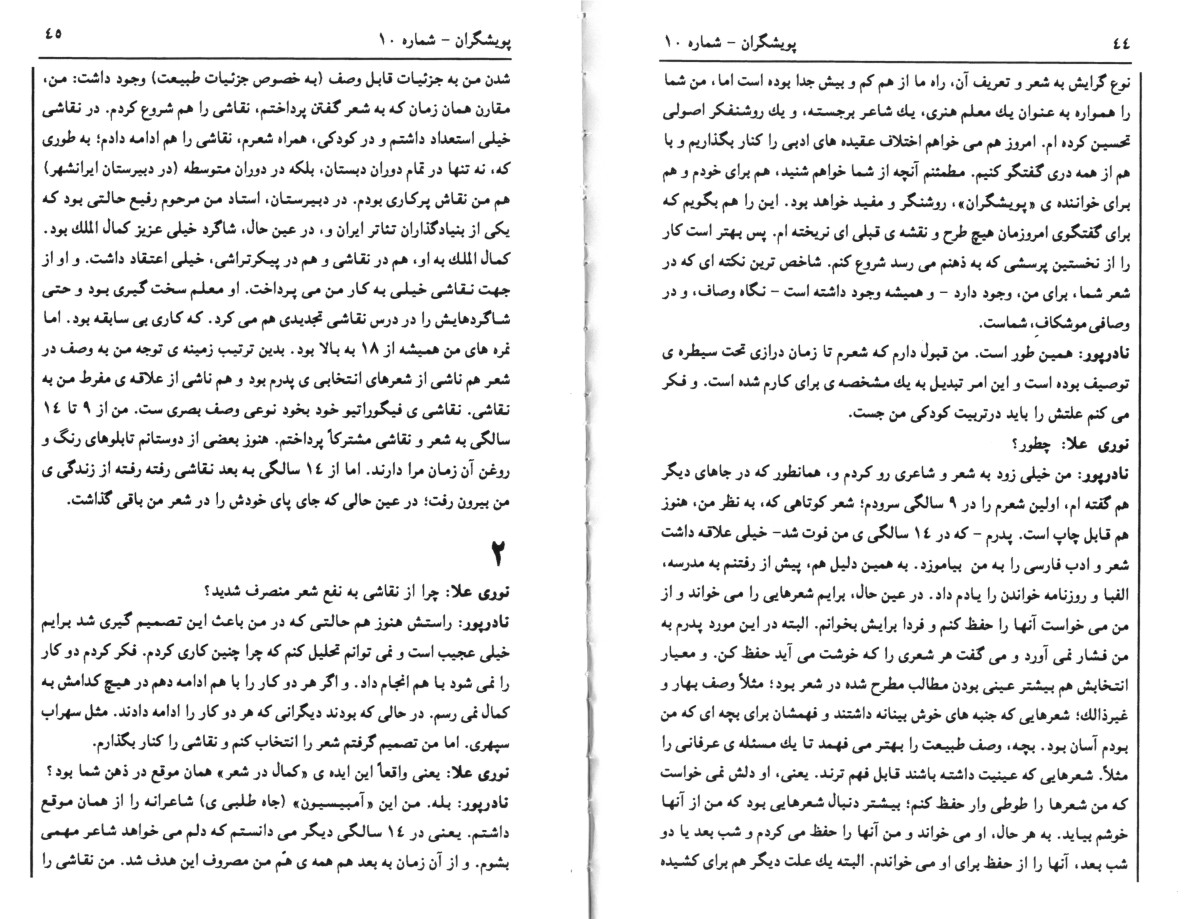 ٤٤ پویشگران – شماره ١٠
نوع گرایش به شعر و تعریف آن، راه ما از هم کم و بیش جدا بوده است اما، من شما
را همواره به عنوان یك معلم هنری، یك شاعر برجسته، و یك روشنفکر اصولی
تحسین کرده ام. امروز هم می خواهم اختلاف عقیده های ادبی را کنار بگذاریم و با
هم از همه دری گفتگو کنیم. مطمئنم آنچه از شما خواهم شنید، هم برای خودم و هم
برای خواننده ی «پویشگران»، روشنگر و مفید خواهد بود. این را هم بگویم که
برای گفتگوی امروزمان هیچ طرح و نقشه ی قبلی ای نریخته ام. پس بهتر است کار
را از نخستین پرسشی که به ذهنم می رسد شروع کنم. شاخص ترین نکته ای که در
شعر شما، برای من، وجود دارد – و همیشه وجود داشته است – نگاه وصاف، و در
وصافی موشکافِ، شماست.
نادرپور: همین طور است. من قبول دارم که شعرم تا زمان درازی تحت سیطره ی
توصیف بوده است و این امر تبدیل به یك مشخصه ی برای کارم شده است. و فکر
می کنم علتش را باید درتربیت کودکی من جست.
نوری علا: چطور؟
نادرپور: من خیلی زود به شعر و شاعری رو کردم و، همانطور که در جاهای دیگر
هم گفته ام، اولین شعرم را در ٩ سالگی سرودم؛ شعر کوتاهی که، به نظر من، هنوز
هم قابل چاپ است. پدرم – که در ١٤ سالگی ی من فوت شد– خیلی علاقه داشت
شعر و ادب فارسی را به من بیاموزد. به همین دلیل هم، پیش از رفتنم به مدرسه،
الفبا و روزنامه خواندن را یادم داد. در عین حال، برایم شعرهایی را می خواند و از
من می خواست آنها را حفظ کنم و فردا برایش بخوانم. البته در این مورد پدرم به
من فشار نمی آورد و می گفت هر شعری را که خوشت می آید حفظ کن. و معیار
انتخابش هم بیشتر عینی بودن مطالب مطرح شده در شعر بود؛ مثلاً وصف بهار و
غیرذالك؛ شعرهایی که جنبه های خوش بینانه داشتند و فهمشان برای بچه ای که من
بودم آسان بود. بچه، وصف طبیعت را بهتر می فهمد تا یك مسئله ی عرفانی را
مثلاً. شعرهایی که عینیت داشته باشند قابل فهم ترند. یعنی، او دلش نمی خواست
که من شعرها را طوطی وار حفظ کنم؛ بیشتر دنبال شعرهایی بود که من از آنها
خوشم بیاید. به هر حال، او می خواند و من آنها را حفظ می کردم و شب بعد یا دو
شب بعد، آنها را از حفظ برای او می خواندم. البته یك علت دیگر هم برای کشیده
پویشگران – شماره ١٠ ٤٥
شدن من به جزئیات قابل وصف (به خصوص جزئیات طبیعت) وجود داشت: من،
مقارن همان زمان که به شعر گفتن پرداختم، نقاشی را هم شروع کردم. در نقاشی
خیلی استعداد داشتم و در کودکی، همراه شعرم، نقاشی را هم ادامه دادم؛ به طوری
که، نه تنها در تمام دوران دبستان، بلکه در دوران متوسطه (در دبیرستان ایرانشهر)
هم من نقاش پرکاری بودم. در دبیرستان، استاد من مرحوم رفیع حالتی بود که
یکی از بنیادگذاران تئاتر ایران و، در عین حال، شاگرد خیلی عزیز کمال الملك بود.
کمال الملك به او، هم در نقاشی و هم در پیکرتراشی، خیلی اعتقاد داشت. و او از
جهت نقاشی خیلی به کار من می پرداخت. او معلم سخت گیری بود و حتی
شاگردهایش را در درس نقاشی تجدیدی هم می کرد. که کاری بی سابقه بود. اما
نمره های من همیشه از ١٨ به بالا بود. بدین ترتیب زمینه ی توجه من به وصف در
شعر هم ناشی از شعرهای انتخابی ی پدرم بود و هم ناشی از علاقه ی مفرط من به
نقاشی. نقاشی ی فیگوراتیو خود بخود نوعی وصف بصری ست. من از ٩ تا ١٤
سالگی به شعر و نقاشی مشترکاً پرداختم. هنوز بعضی از دوستانم تابلوهای رنگ و
روغن آن زمان مرا دارند. اما از ١٤ سالگی به بعد نقاشی رفته رفته از زندگی ی
من بیرون رفت؛ در عین حالی که جای پای خودش را در شعر من باقی گذاشت.
٢
نوری علا: چرا از نقاشی به نفع شعر منصرف شدید؟
نادرپور: راستش هنوز هم حالتی که در من باعث این تصمیم گیری شد برایم
خیلی عجیب است و نمی توانم تحلیل کنم که چرا چنین کاری کردم. فکر کردم دو کار
را نمی شود با هم انجام داد. و اگر هر دو کار را با هم ادامه دهم در هیچ کدامش به
کمال نمی رسم. در حالی که بودند دیگرانی که هر دو کار را ادامه دادند. مثل سهراب
سپهری. اما من تصمیم گرفتم شعر را انتخاب کنم و نقاشی را کنار بگذارم.
نوری علا: یعنی واقعاً این ایده ی «کمال در شعر» همان موقع در ذهن شما بود؟
نادرپور: بله. من این «آمبیسیون» (جاه طلبی ی) شاعرانه را از همان موقع
داشتم. یعنی در ١٤ سالگی دیگر می دانستم که دلم می خواهد شاعر مهمی
بشوم. و از آن زمان به بعد هم همه ی همّ من مصروف این هدف شد. من نقاشی را